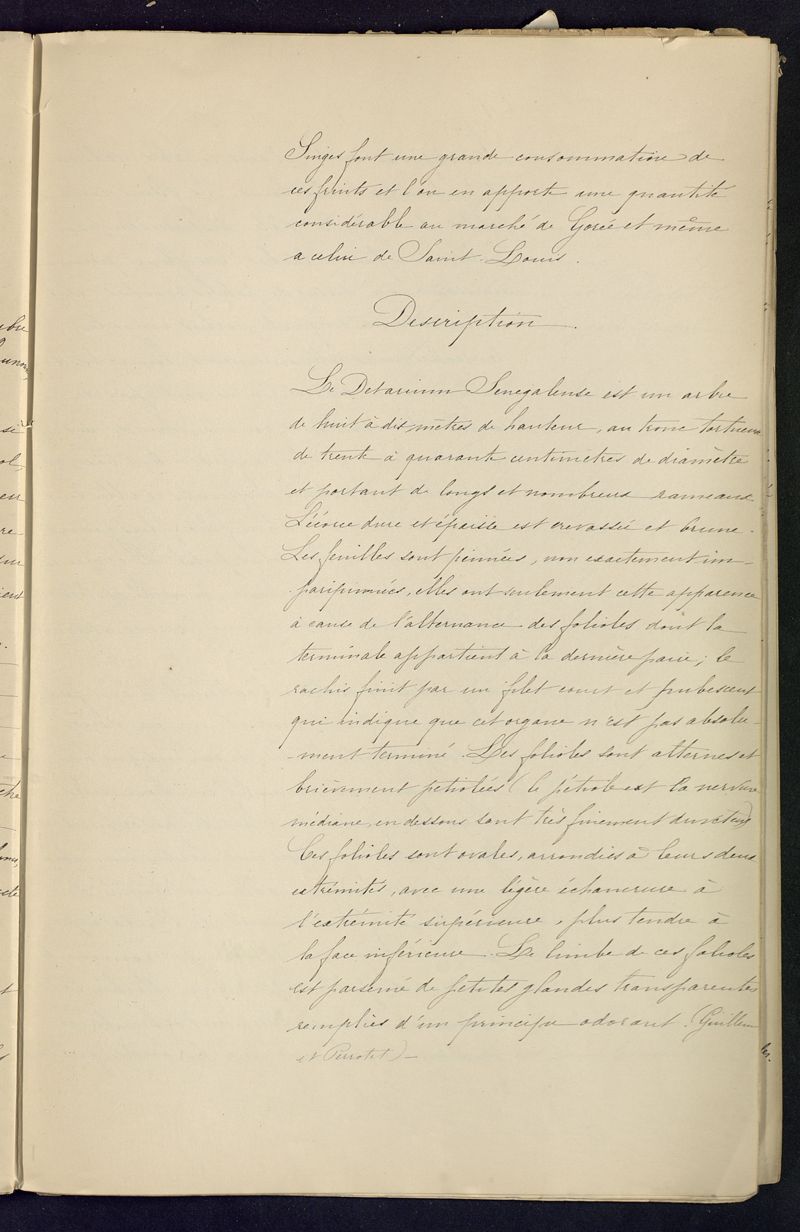 Singes font une grande consommation de
ces fruits et l'on en apporte une quantité
considérable au marché de Gorée et même
a celui de Saint-Louis.
Description.
Le Detarium Senegalense est un arbre
de huit à dix mètres de hauteur, au tronc tortueux
de trente à quarante centimètres de diamètre
et portant de longs et nombreux rameaux.
L'écorce dure et épaisse est crevassée et brune.
Les feuilles sont pinnées, non exactement im-
paripinnées, elles ont seulement cette apparence
à cause de l'alternance des folioles dont la
terminale appartient à la dernière paire; le
rachis finit par un filet court et pubescent
qui indique que cet organe n'est pas absolu-
-ment terminé. Les folioles sont alternes et
brièvement petiolées (le pétiole et la nervure
médiane en dessous sont très finement duveteux)
Ces folioles sont ovales, arrondies à leurs deux
extrémités, avec une légère échancrure à
l'extrémité supérieure, plus tendre à
la face inférieure. Le limbe de ces folioles
est parsemé de petites glandes transparentes
remplies d'un principe odorant. (Guillem
et Perrotet)-